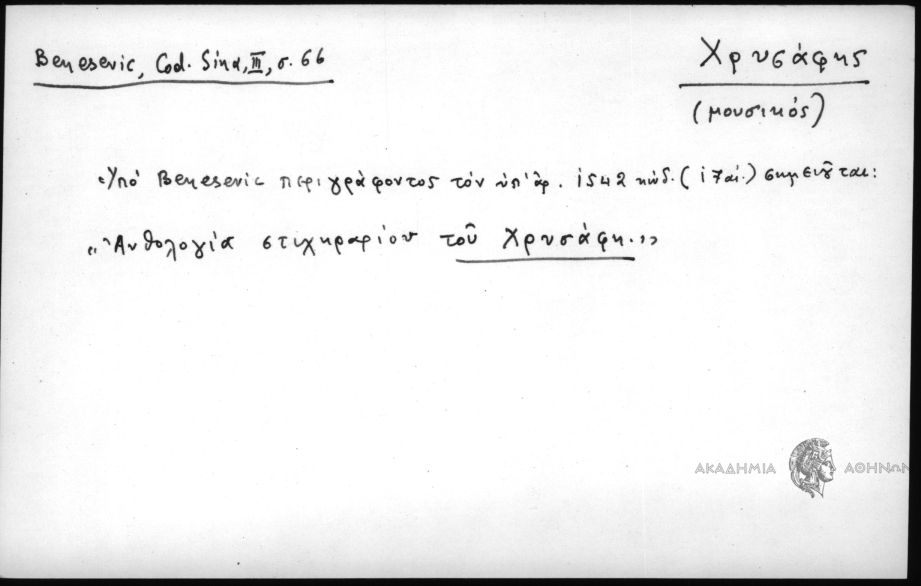 Benesevic, Cod. Sina, III, σ. 66
Χρυσάφης
(μουσικός)
Ὑπό Benesevic περιγράφοντος τόν ὑπ' ἀρ. 1542 κώδ. (17 αἰ.) σημειοῦται:
"Ἀνθολογία στιχηραρίου τοῦ Χρυσάφη."
ΑΚΑΔΗΜΙΑ ΑΘΗΝΩΝ